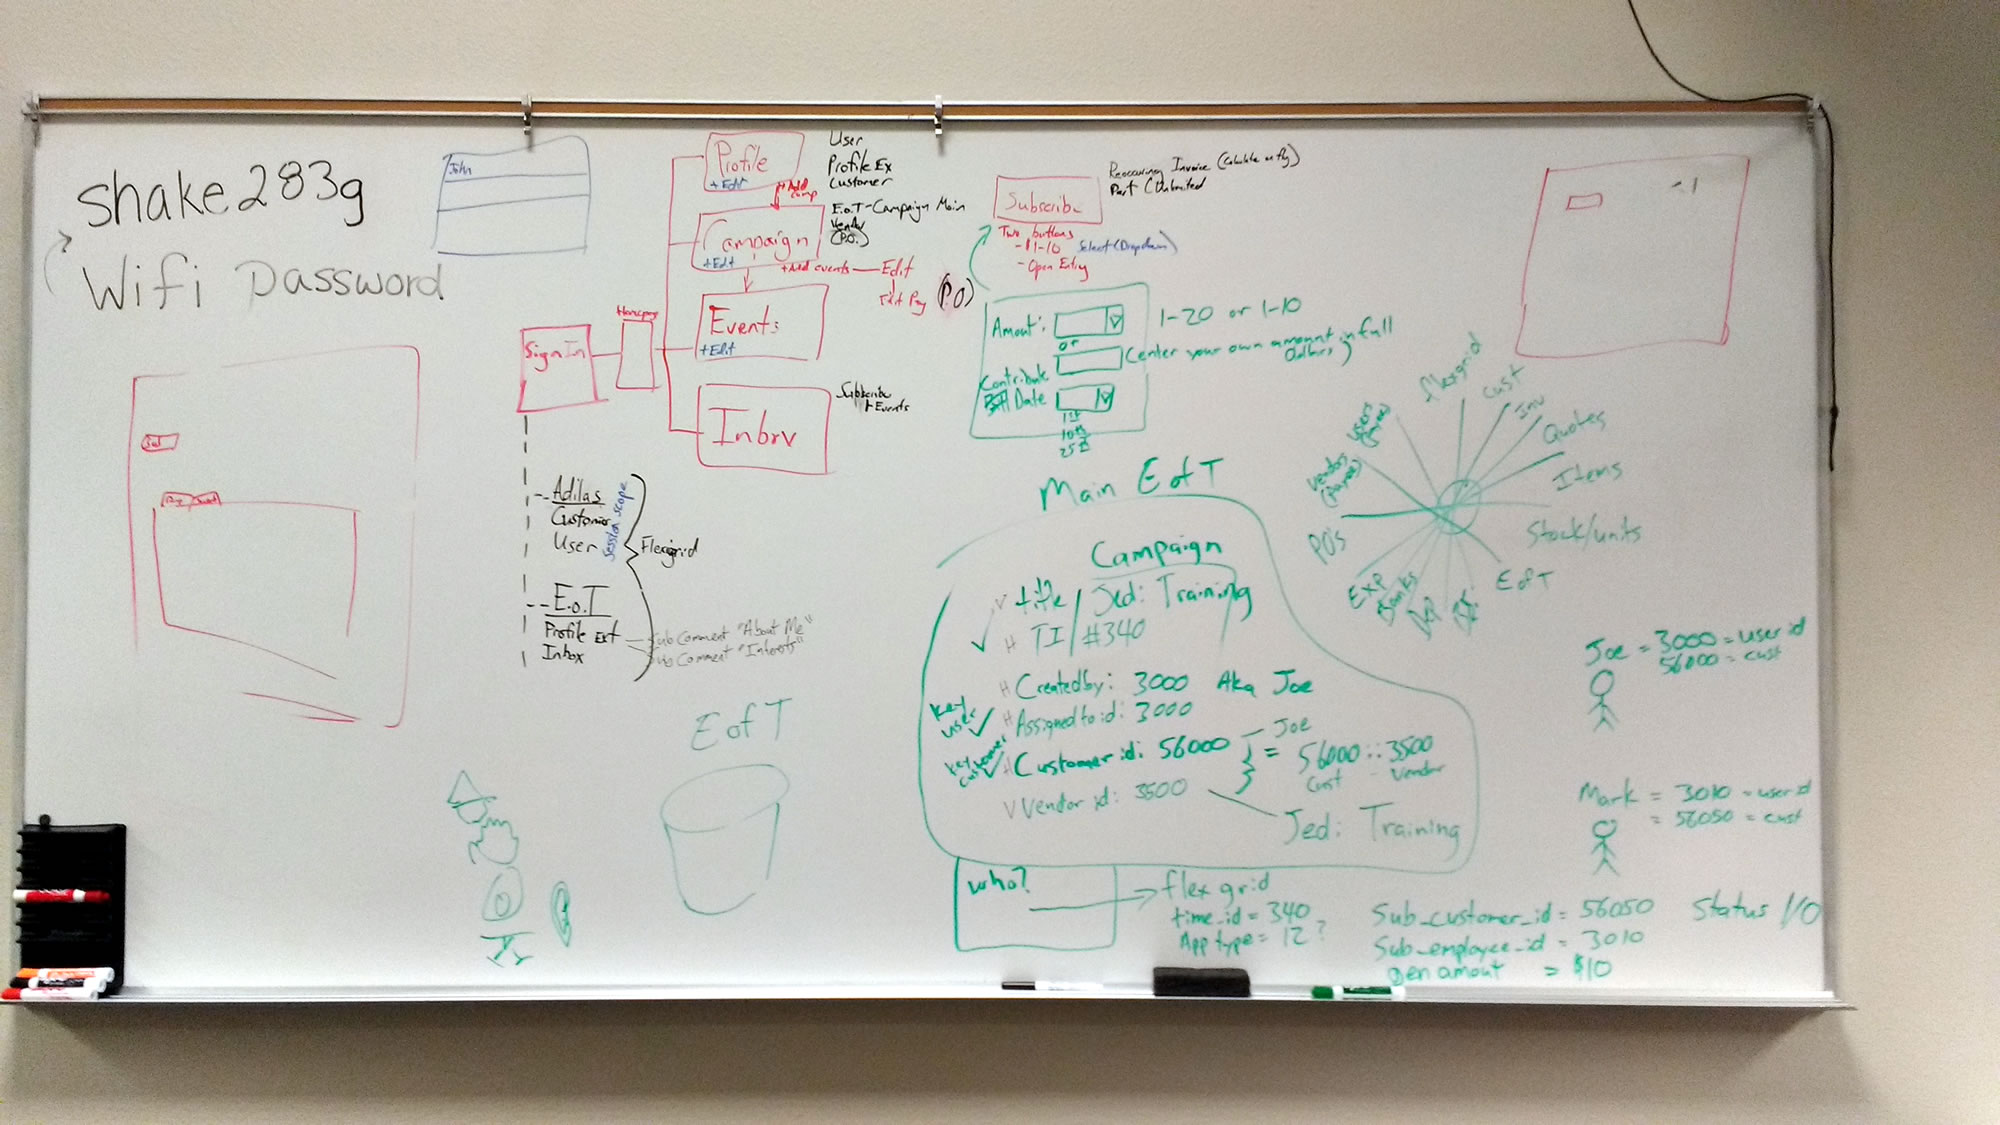 shake283g
Wifi Password
John
Profile
+Edit
User
Profile Ex
Customer
+Add
camp
Campaign
+Edit
E.o.T-Campaign Main
Vendor
(P.O.)
+Add events — Edit
Edit Pay (P.O)
Events
+Edit
Homepage
Sign In
Subscribe
+Events
Subscribe
Reoccuring Invoice (Calculate on fly)
Part (Unlimited
Two buttons
-$1-10 Select (Dropdown)
-Open Entry
Amount:
1-20 or 1-10
or
(enter your own amount in full
dollars)
Contribute
Date
1st
10th
25th
Adilas
Customer
User
Session scope
Flexgrid
E.o.T
Profile Ext
Inbox
Sub Comment "About Me"
Sub Comment "Interests"
E of T
Main E of T
Campaign
title / Jed: Training
TI / #340
Created by: 3000 Aka Joe
key
user
Assigned to id: 3000
key
customer
Customer id: 56000
Joe
= 56000 :: 3500
Cust - Vendor
Vendor id: 3500
Jed: Training
who?
flex grid
time_id = 340
App type = 12?
Sub_customer_id = 56050
Status 1/0
Sub_employee_id = 3010
gen amount = $10
flexgrid
Cust
Inv
Quotes
Items
Stock/units
E of T
Banks
EXP
POs
Vendors
(payees)
Users
Joe = 3000 = user id
56000 = cust
Mark = 3010 = user id
= 56050 = cust
-1